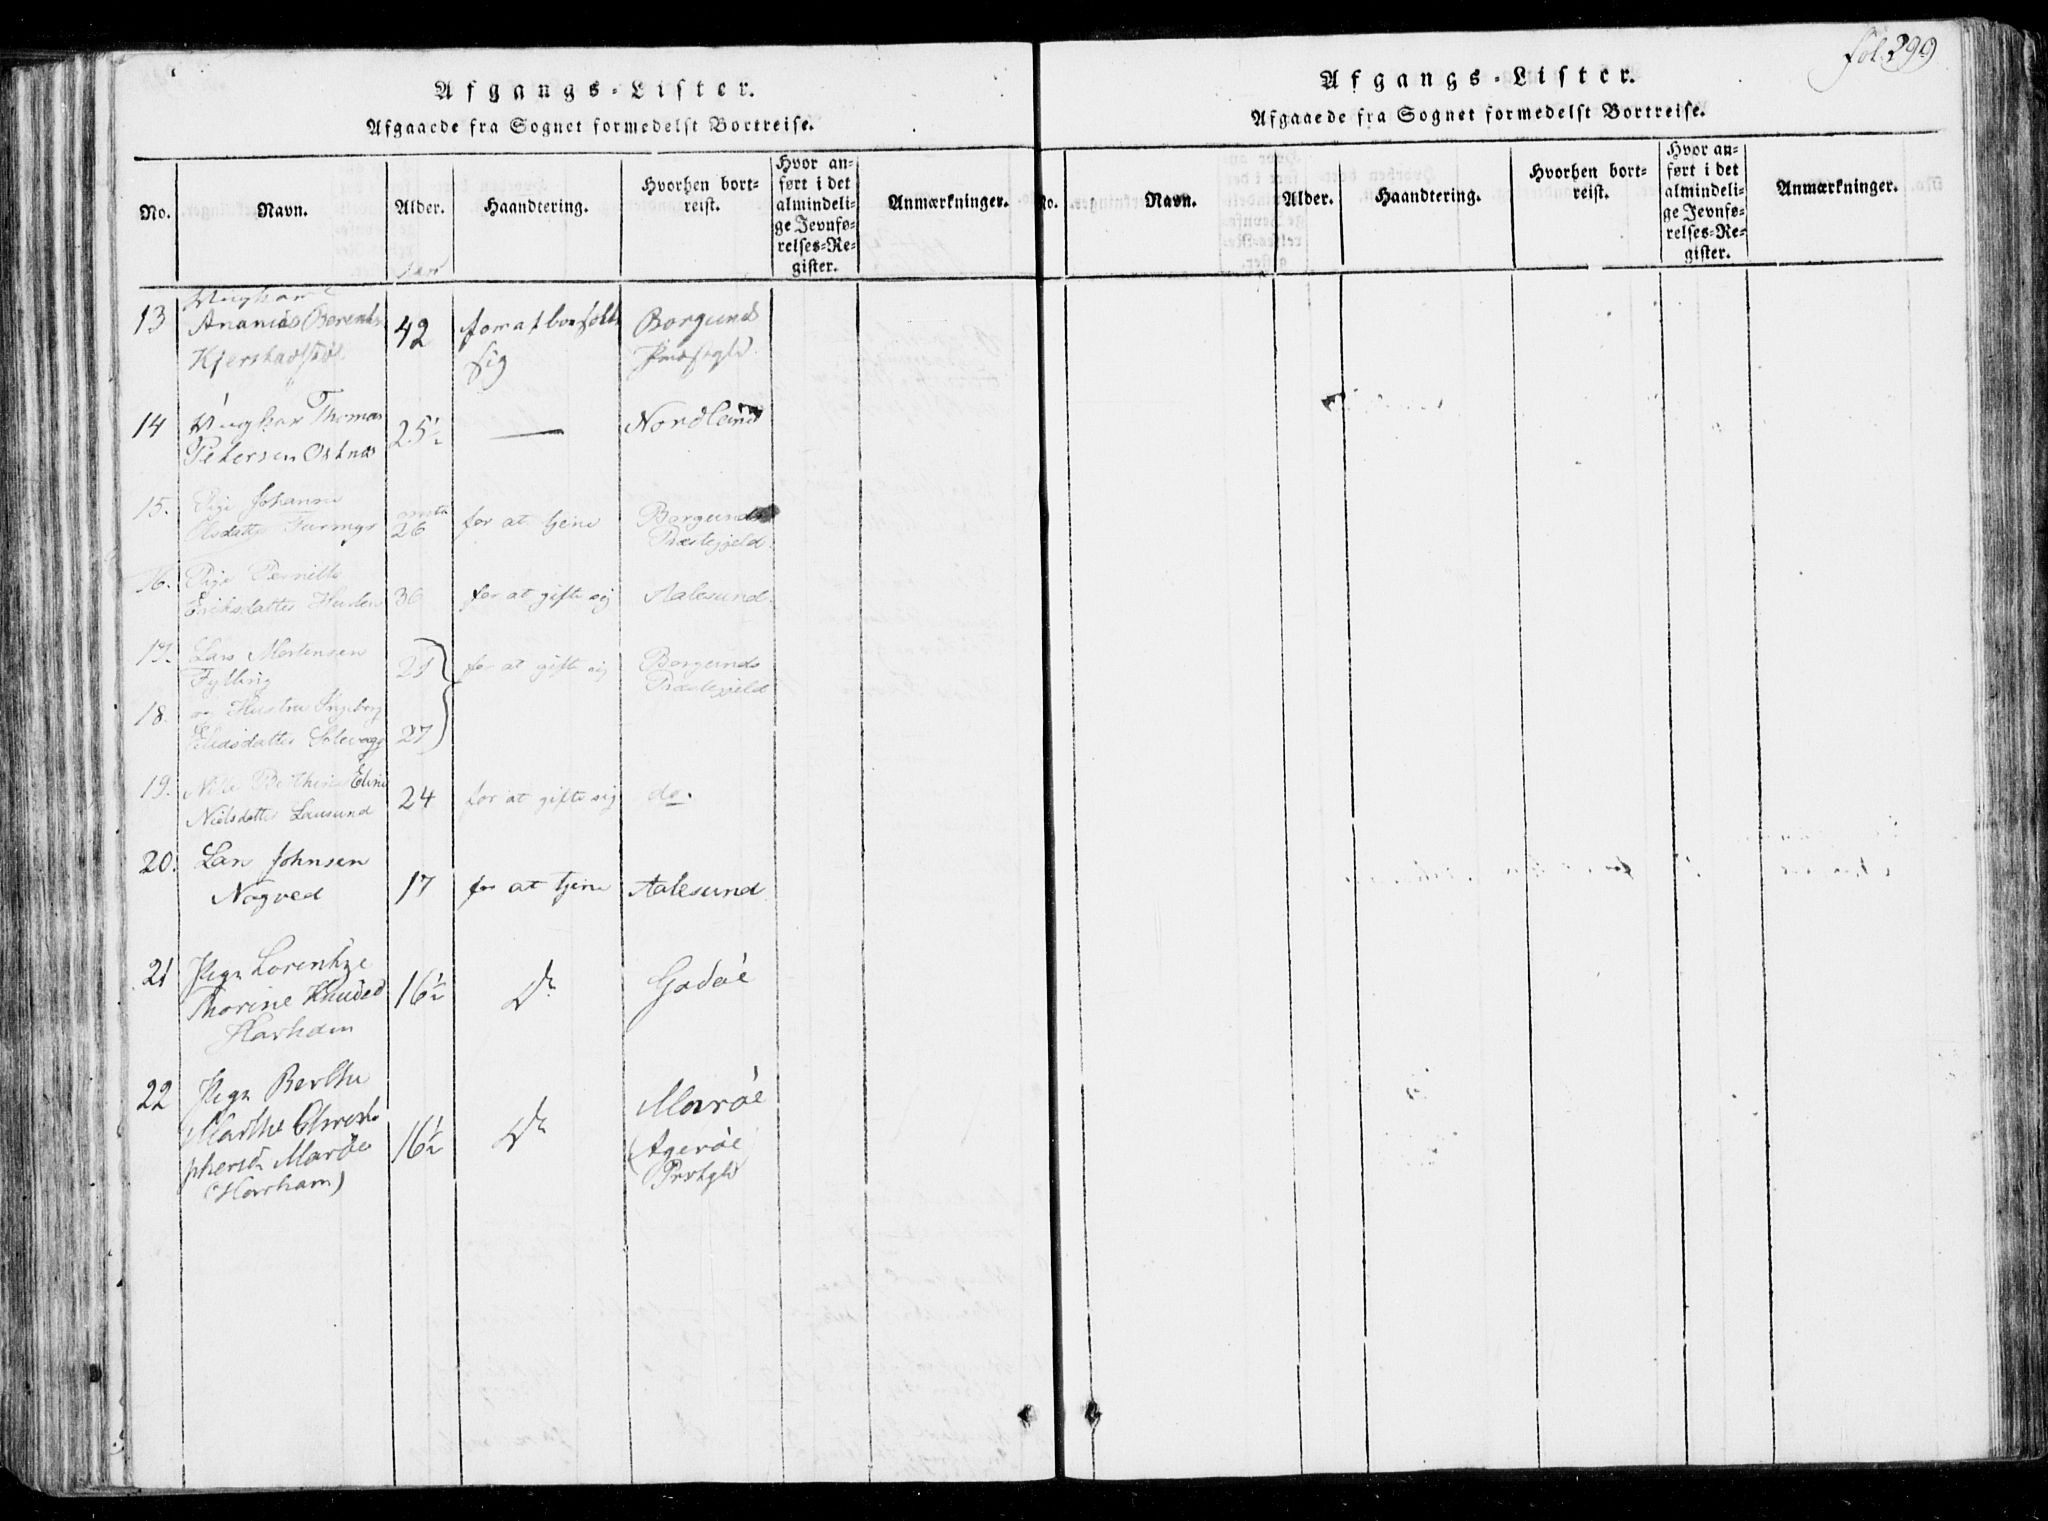 Afgangs-Lister.
Afgaaede fra Sognet formedelst Bortreise.
No. Navn. Alder. Haandtering. Hvorhen bort=reist. Hvor an=ført i det almindeli=ge Jevnfø=relses=Re=gister. Anmærkninger.
Aar
13 Ungkarl Ananias Berents Kjerstadsøl 42 sig Borgund Præstgld.
14 Ungkar Thomas Petersen Ostnæs 25½ — Nordland
15. Pige Johanne Olsdatter omtr 26 for at tjene Borgunds Præstegjeld.
16. Pige Pernille Eriksdatter 36 for at gifte sig Aalesund.
17. Lars Mortensen Fylling for at gifte sig Borgunds Præstegjeld
18. Hustru Ingeborg 27
19. Nielsdatter Lausund 24 for at gifte sig do.
20. Lars Johnsen Nogved 17 for at tjene Aalesund.
21 Pige Lorentze Thorine Knudsd Harham 16½ Do Godøe
22 Pige Berthe Marthe Christopherd Marøe (Harham) 16½ Do Marøe (Agerøe Prstgld
fol. 299
Afgangs-Lister.
Afgaaede fra Sognet formedelst Bortreise.
No. Navn. Alder. Haandtering. Hvorhen bort=reist. Hvor an=ført i det almindeli=ge Jevnfø=relses=Re=gister. Anmærkninger.